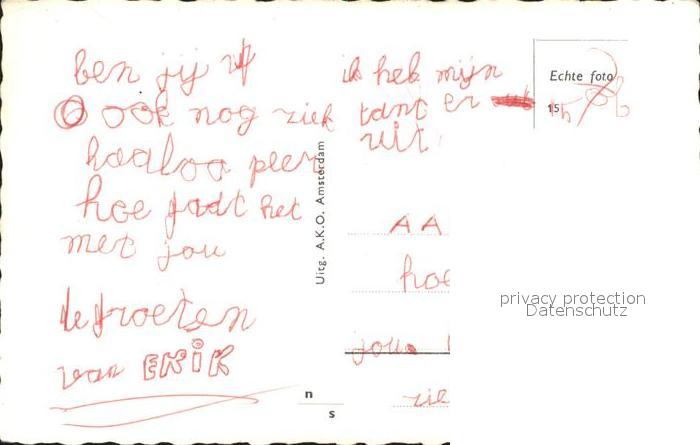 ben jij
ook nog ziek
haaloo peer
hoe gadt het
met jou
de groeten
van ERiK
ik heb mijn
tant er
uit.
Echte foto
15
Uitg. A.K.O. Amsterdam
AA
hoe
jou.
zie
n
s
privacy protection
Datenschutz